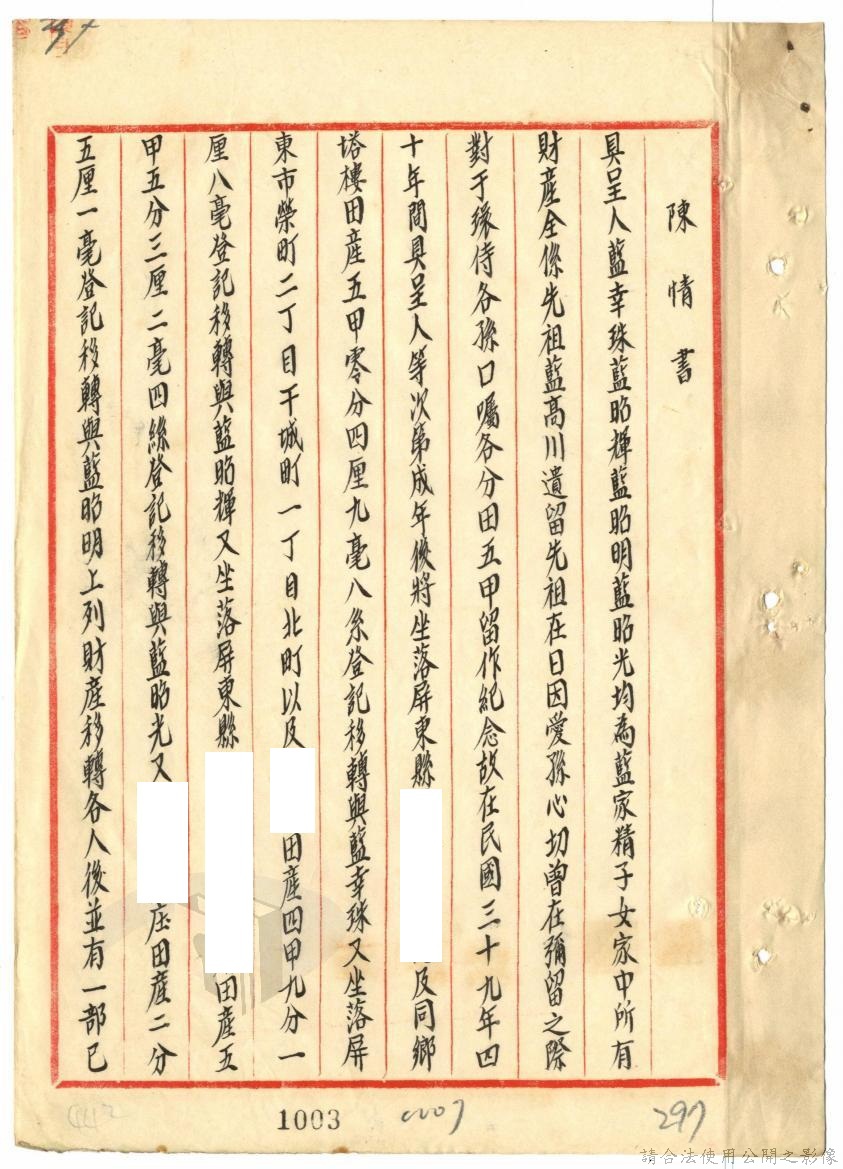 陳情書
具呈人藍幸珠藍昭輝藍昭明藍昭光均為藍家精子女家中所有
財產全係先祖藍高川遺留先祖在日因愛孫心切曾在彌留之際
對于環侍各孫口囑各分田五甲留作紀念故在民國三十九年四
十年間具呈人等次第成年後將坐落屏東縣 及同鄉
塔樓田產五甲零分四厘九毫八糸登記移轉與藍幸珠又坐落屏
東市榮町二丁目干城町一丁目北町以及 田產四甲九分一
厘八毫登記移轉與藍昭輝又坐落屏東縣 田產五
甲五分三厘二毫四絲登記移轉與藍昭光又 庄田產二分
五厘一毫登記移轉與藍昭明上列財產移轉各人後並有一部已
1003
297
請合法使用公開之影像